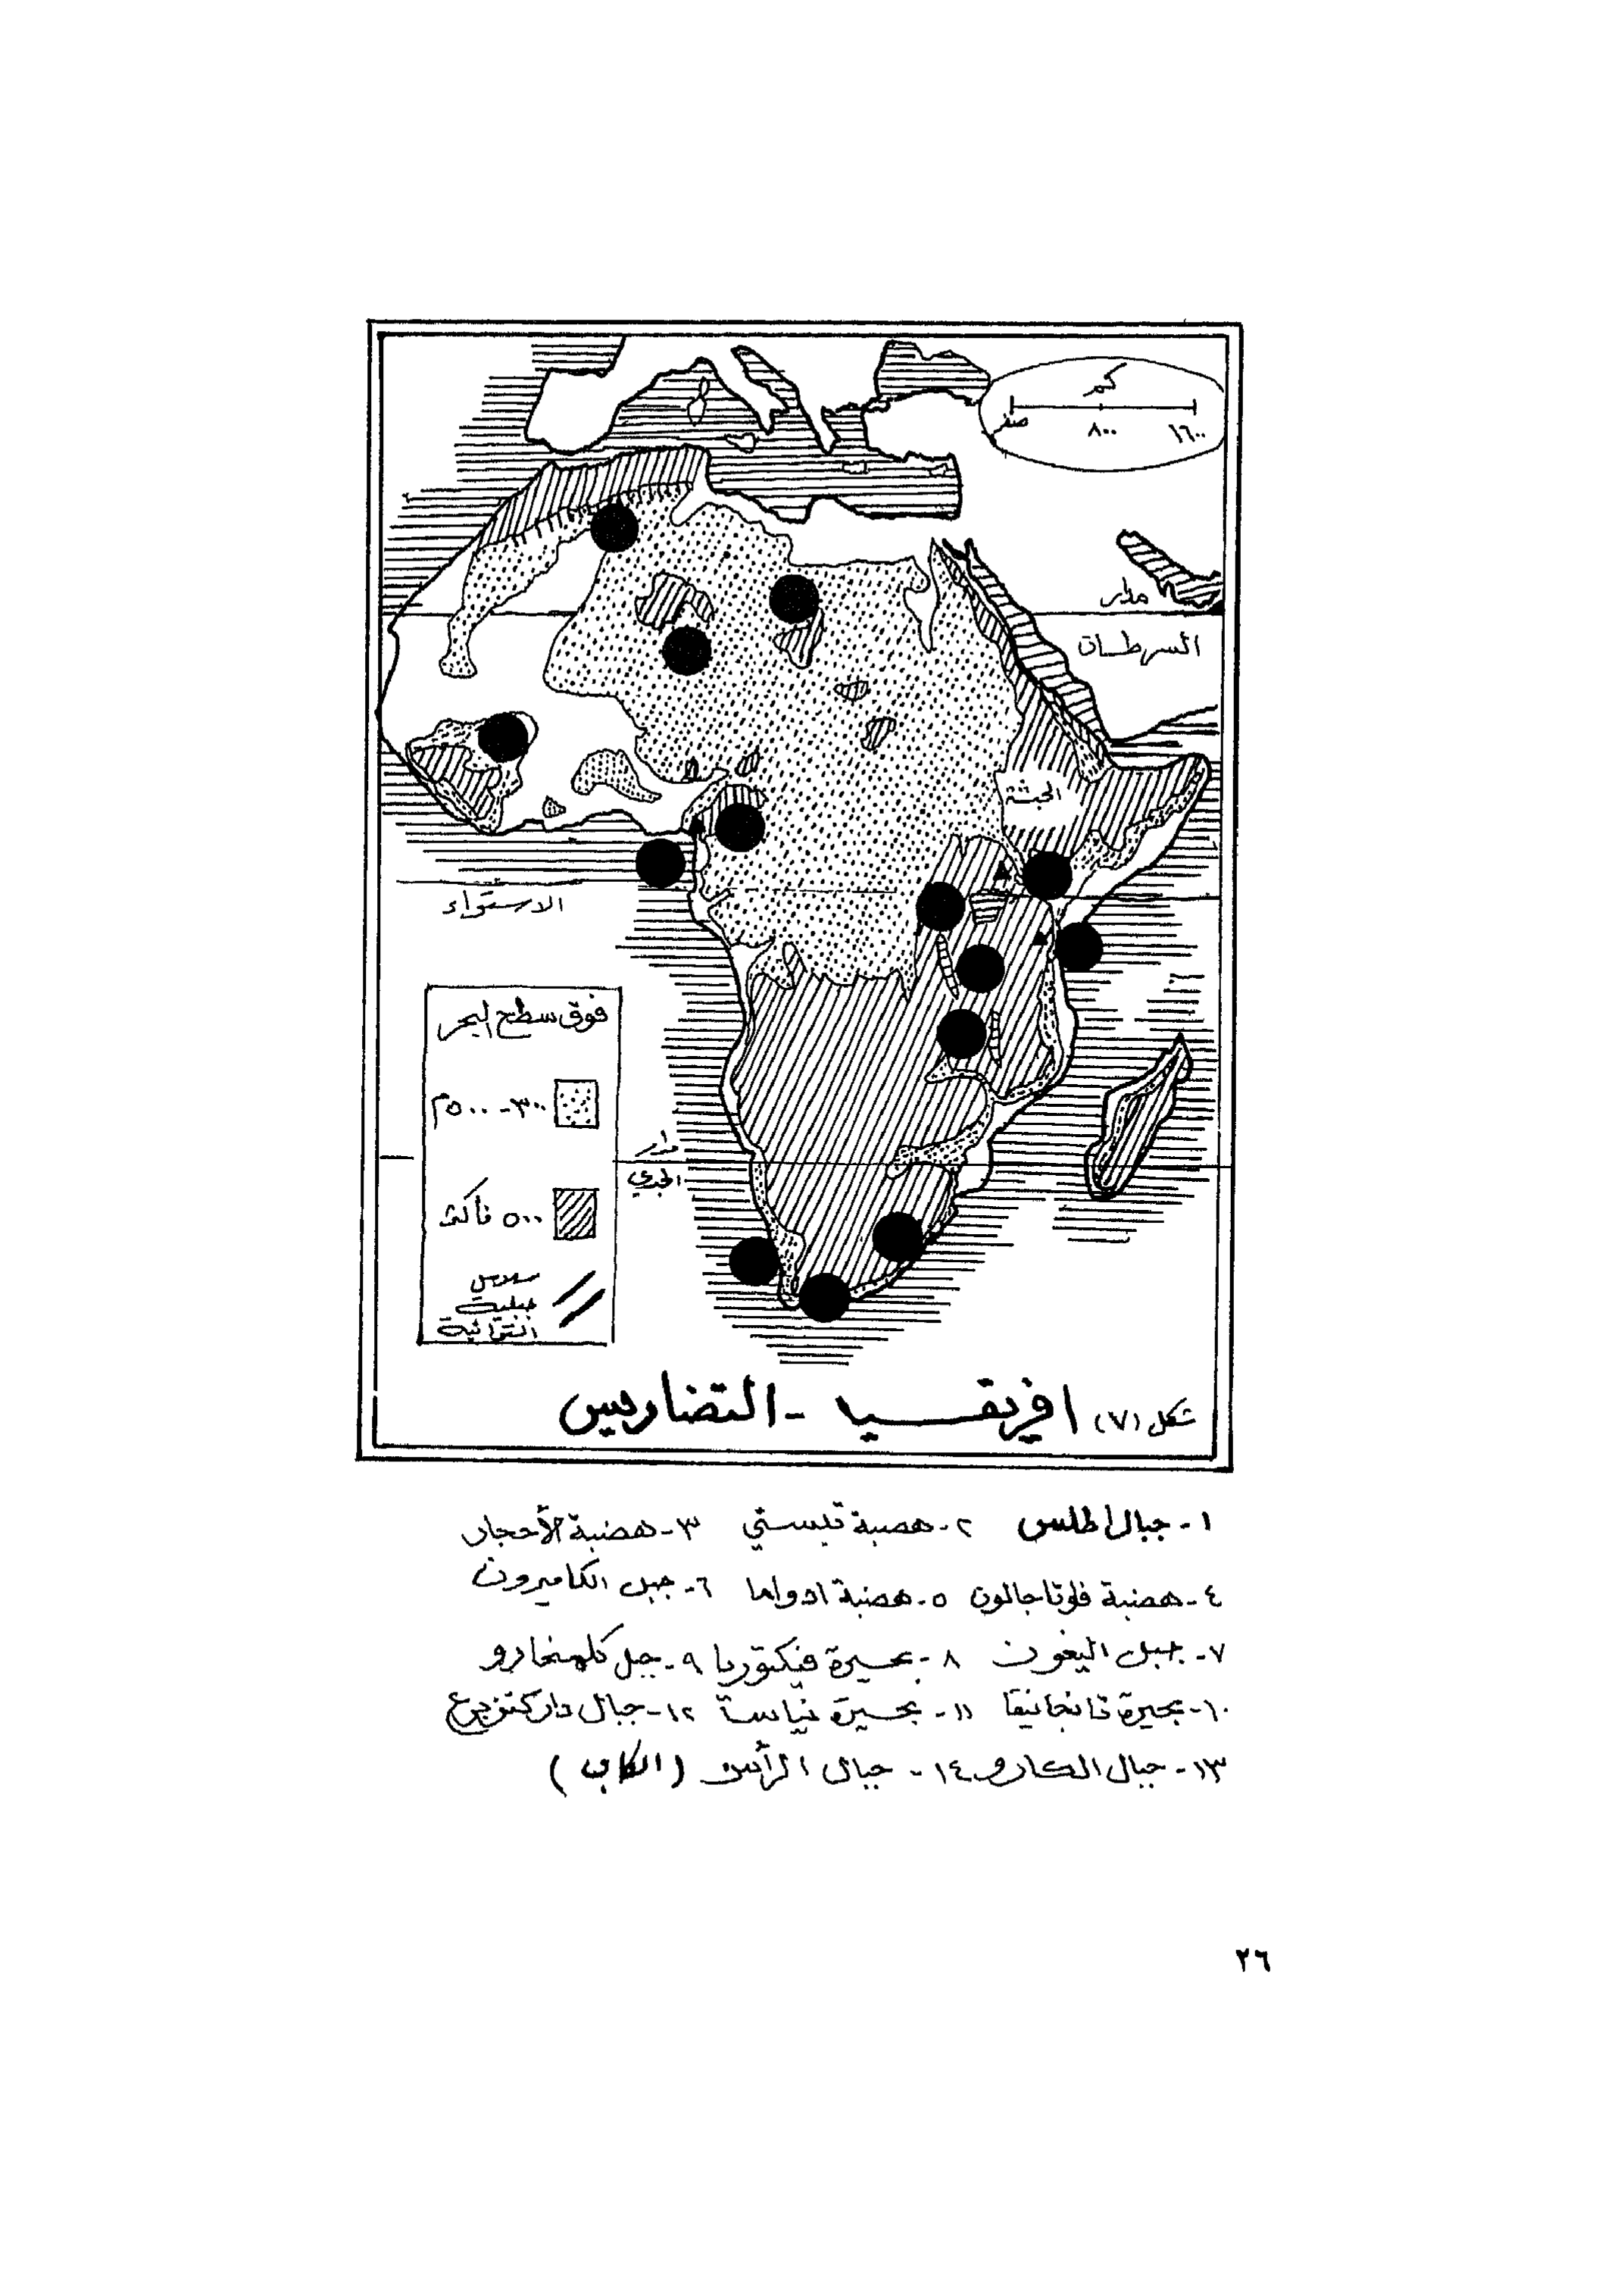 كم
صفر ٨٠٠ ١٦٠٠
مدار
السرطان
الحبشة
الاستواء
فوق سطح البحر
٣٠٠-٥٠٠م
٥٠٠ فأكثر
سلاسل
جبلية
التوائية
مدار
الجدي
شكل (٧) افريقيا - التضاريس
١- جبال اطلس ٢- هضبة تبستي ٣- هضبة الأحجار
٤- هضبة فوتا جالون ٥- هضبة ادواما ٦- جبل الكاميرون
٧- جبل اليغون ٨- بحيرة فكتوريا ٩- جبل كلمنجارو
١٠- بحيرة تانجانيقا ١١- بحيرة نياسا ١٢- جبال داركنزبرغ
١٣- جبال الكارو ١٤- جبال الرأس (الكاب)
٢٦